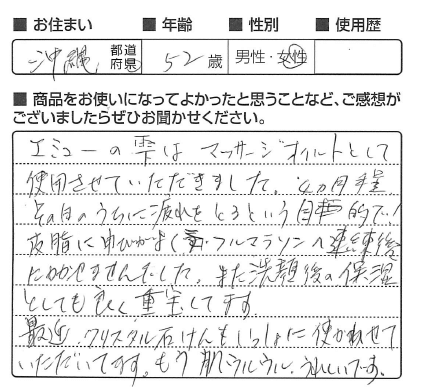 ■ お住まい ■ 年齢 ■ 性別 ■ 使用歴
沖縄 都道府県 52歳 男性・女性
■ 商品をお使いになってよかったと思うことなど、ご感想が
ございましたらぜひお聞かせください。
エミューの雫は マッサージオイルとして
使用させていただきました。4ヵ月程
その日のうちに疲れをとるという目的で!
皮脂に フルマラソンへ 練後
にかかせませんでした。また洗顔後の保湿
としても良く重宝してます。
最近、クリスタル石けんもいっしょに使わせて
いただいてます。もう肌ウルウル、うれしいです。